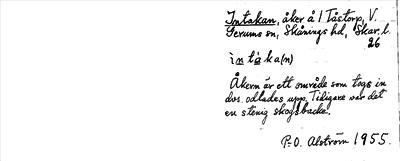 Intakan, åker å 1 Tåstorp, V.
Gerums sn, Skånings hd, Skar. l.
26
ìntàka(n)
Åkern är ett område som togs in
dvs. odlades upp. Tidigare var det
en stenig skogsbacke.
P-O. Alström 1955.